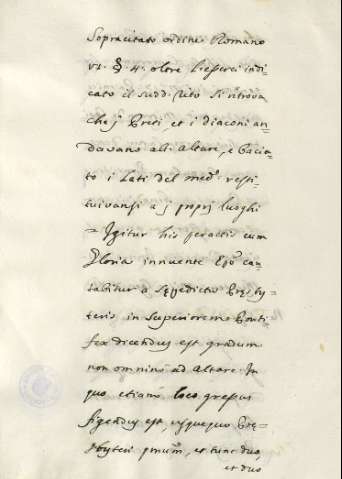 Sopracitato ordine Romano
VI. §. 4. oltre l'esserci indi-
cato il sudd: Rito si ritrova
che j Preti, et i diaconi an-
davano all' Altare, e bacia-
to i lati del med:º resti-
tuivansi a j proprj luoghi
= Igitur his peractis cum
Gloria innuente Epõ can-
tabitur a Prędictis Pręsby-
teris in superiorem Ponti-
fex dicendus est gradum
non omnino ad Altare. In
quo etiam loco gressus
figendus est, usquequo Pre-
sbyteri primũ, et tunc duo,
et duo